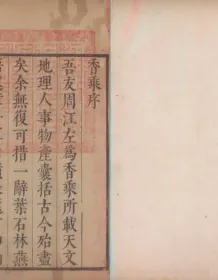 香乘序
吾友周江左為香乘所載天文
地理人事物產囊括古今殆盡
矣余無復可措一辭葉石林燕